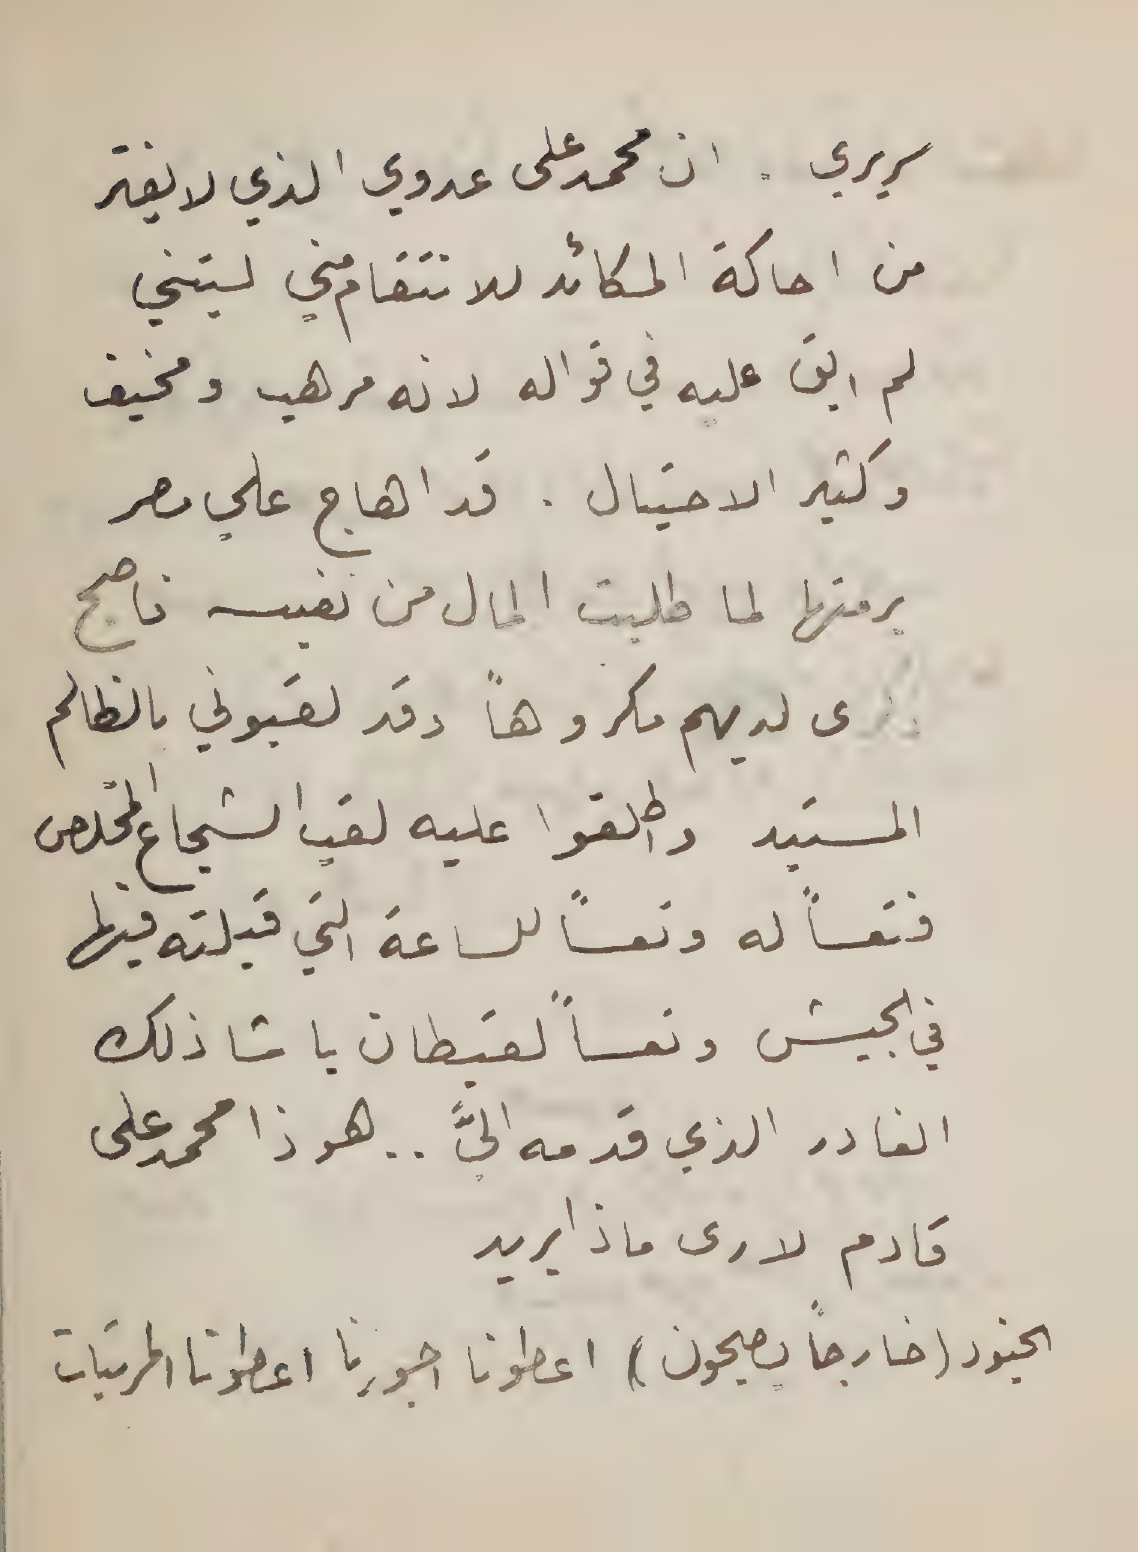 سريري . ان محمد على عدوي الذي لا يفتر
من احاكة المكائد للانتقام مني ليتني
لم ابق عليه في قواله لانه مرهب ومخيف
وكثير الاحتيال . قد اهاج علي مصر
برمتها لما طلبت المال من نفيسه فاصبح
لديهم مكروهاً وقد لقبوني بالظالم
المستبد واطلقوا عليه لقب الشجاع المخلص
فتعساً له وتعساً للساعة التي قبلته فيها
في الجيش وتعساً لقبطان باشا ذلك
الغادر الذي قدمه اليَّ .. هوذا محمد على
قادم لارى ماذا يريد
الجنود (خارجاً يصيحون) اعطونا اجورنا اعطونا المرتبات